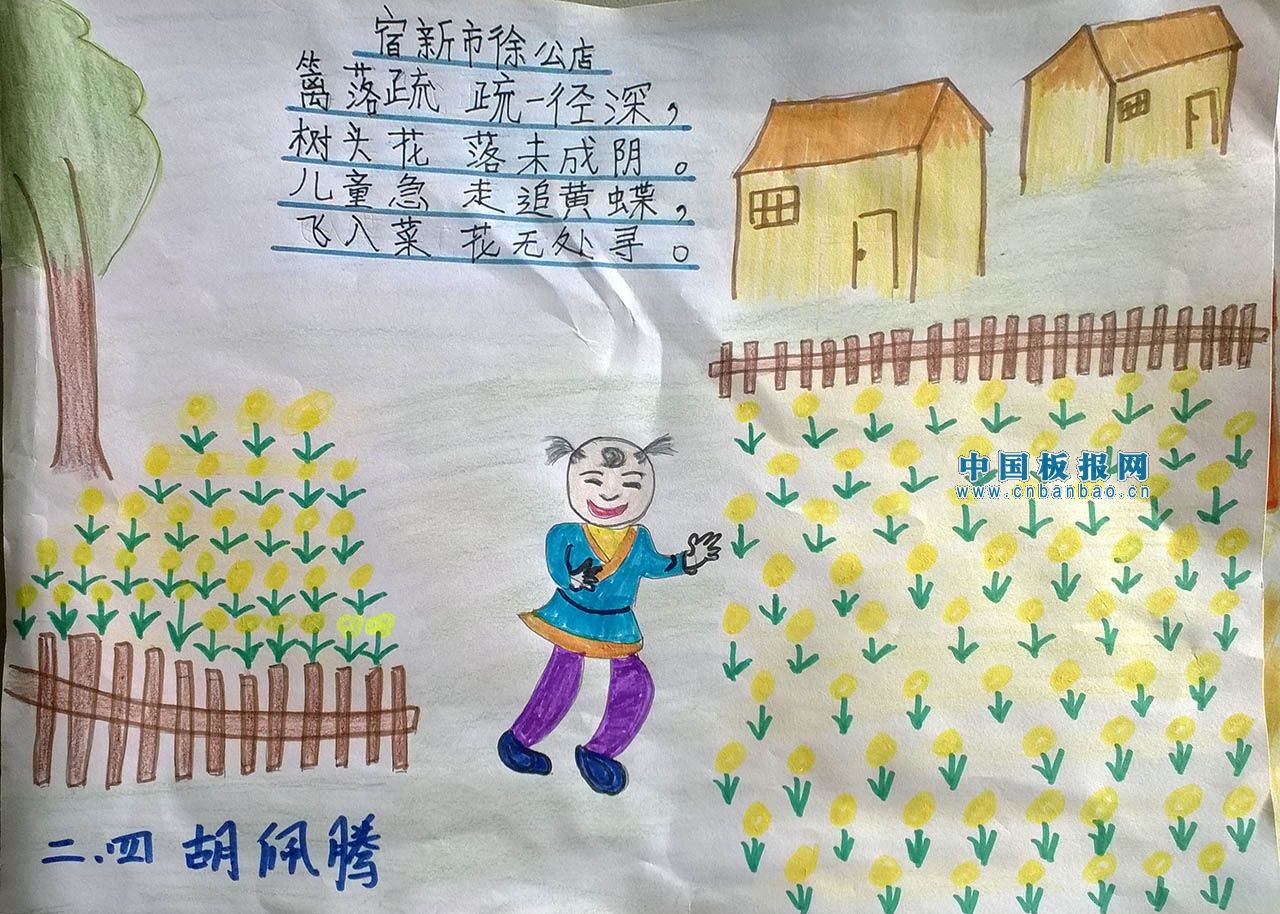 宿新市徐公店
篱落疏 疏一径深，
树头花 落未成阴。
儿童急 走追黄蝶，
飞入菜 花无处寻。
中国板报网
www.cnbanbao.cn
二.四 胡佩腾